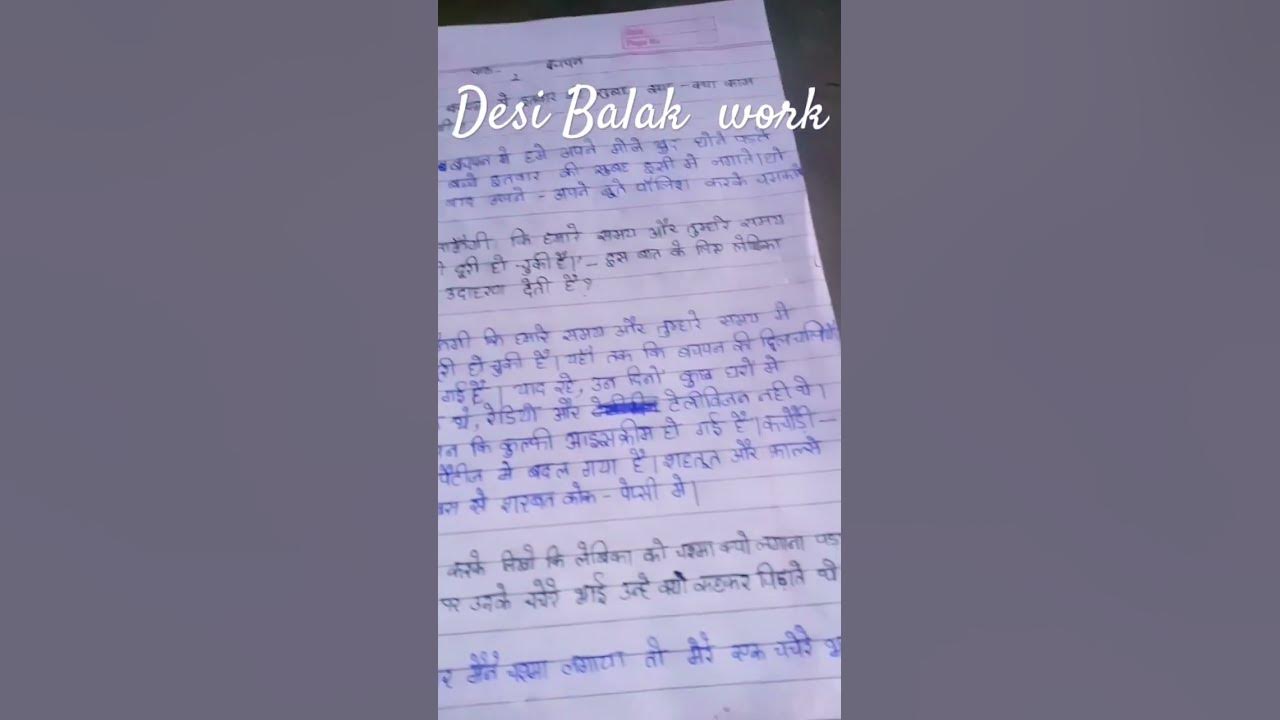 Date
Page No.
पाठ- 2 बचपन
Desi Balak work
बचपन मे हमे अपने मोजे खुद धोने पड़ते
बाद अपने - अपने जूते पॉलिश करके चमकाते
कि हमारे समय और तुम्हारे समय
दूरी हो चुकी है।' - इस बात के लिए लेखिका
उदाहरण देती हैं?
कि हमारे समय और तुम्हारे समय मे
हो चुकी है। यहाँ तक कि बचपन की दिलचस्पियाँ
गई है। याद रहे, उन दिनो कुछ घरो मे
थे, रेडियो और टेलीविजन नही थे।
कि कुल्फी आइसक्रीम हो गई है। कचौड़ी -
पैटीज मे बदल गया है। शहतूत और फ़ाल्से
से शरबत कोक - पेप्सी मे।
करके लिखो कि लेखिका को चश्मा क्यो लगाना पड़ा
पर उनके चचेरे भाई उन्हे क्या कहकर चिढ़ाते थे
मैंने चश्मा लगाया तो मेरे एक चचेरे